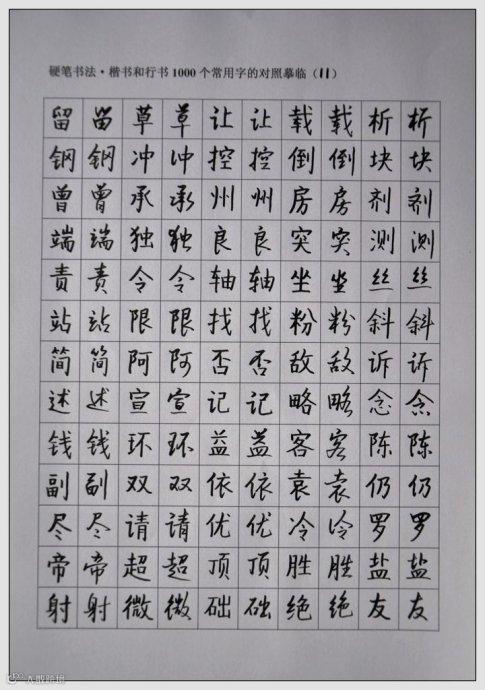 硬笔书法·楷书和行书1000个常用字的对照摹临（11）
留 留 草 草 让 让 载 载 析 析
钢 钢 冲 冲 控 控 倒 倒 块 块
曾 曾 承 承 州 州 房 房 剂 剂
端 端 独 独 良 良 突 突 测 测
责 责 令 令 轴 轴 坐 坐 丝 丝
站 站 限 限 找 找 粉 粉 斜 斜
简 简 阿 阿 否 否 敌 敌 诉 诉
述 述 宣 宣 记 记 略 略 念 念
钱 钱 环 环 益 益 客 客 陈 陈
副 副 双 双 依 依 袁 袁 仍 仍
尽 尽 请 请 优 优 冷 冷 罗 罗
帝 帝 超 超 顶 顶 胜 胜 盐 盐
射 射 微 微 础 础 绝 绝 友 友